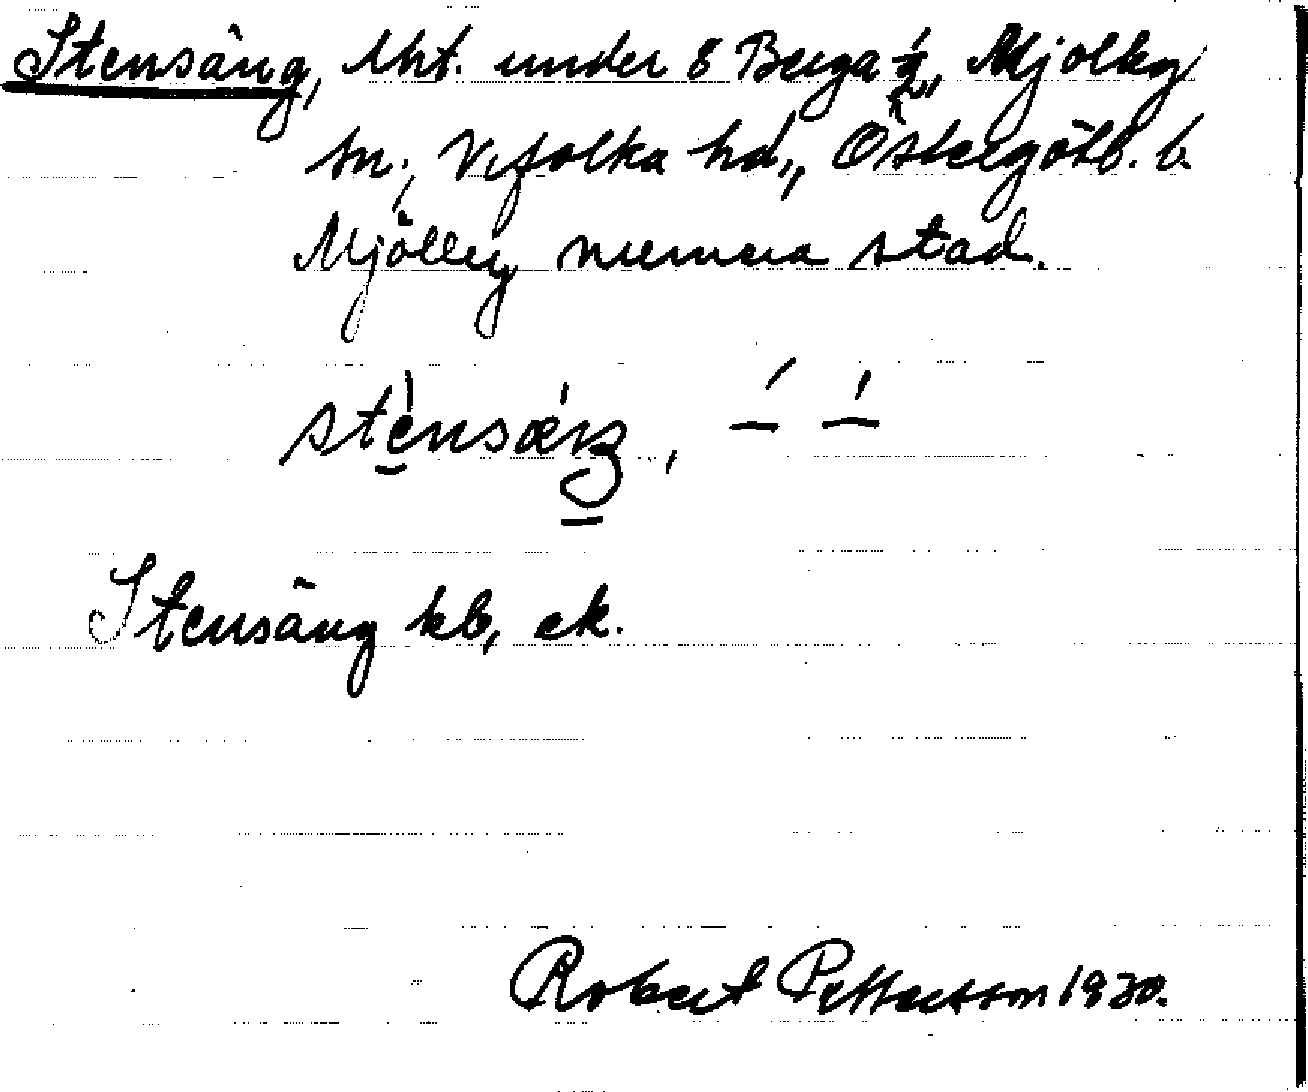 Stensäng, lht. under 8 Berga, Mjölby
sn., Vifolka hd., Östergötl. l.
Mjölby numera stad.
Stensäng kb, ek.
Robert Pettersson 1930.